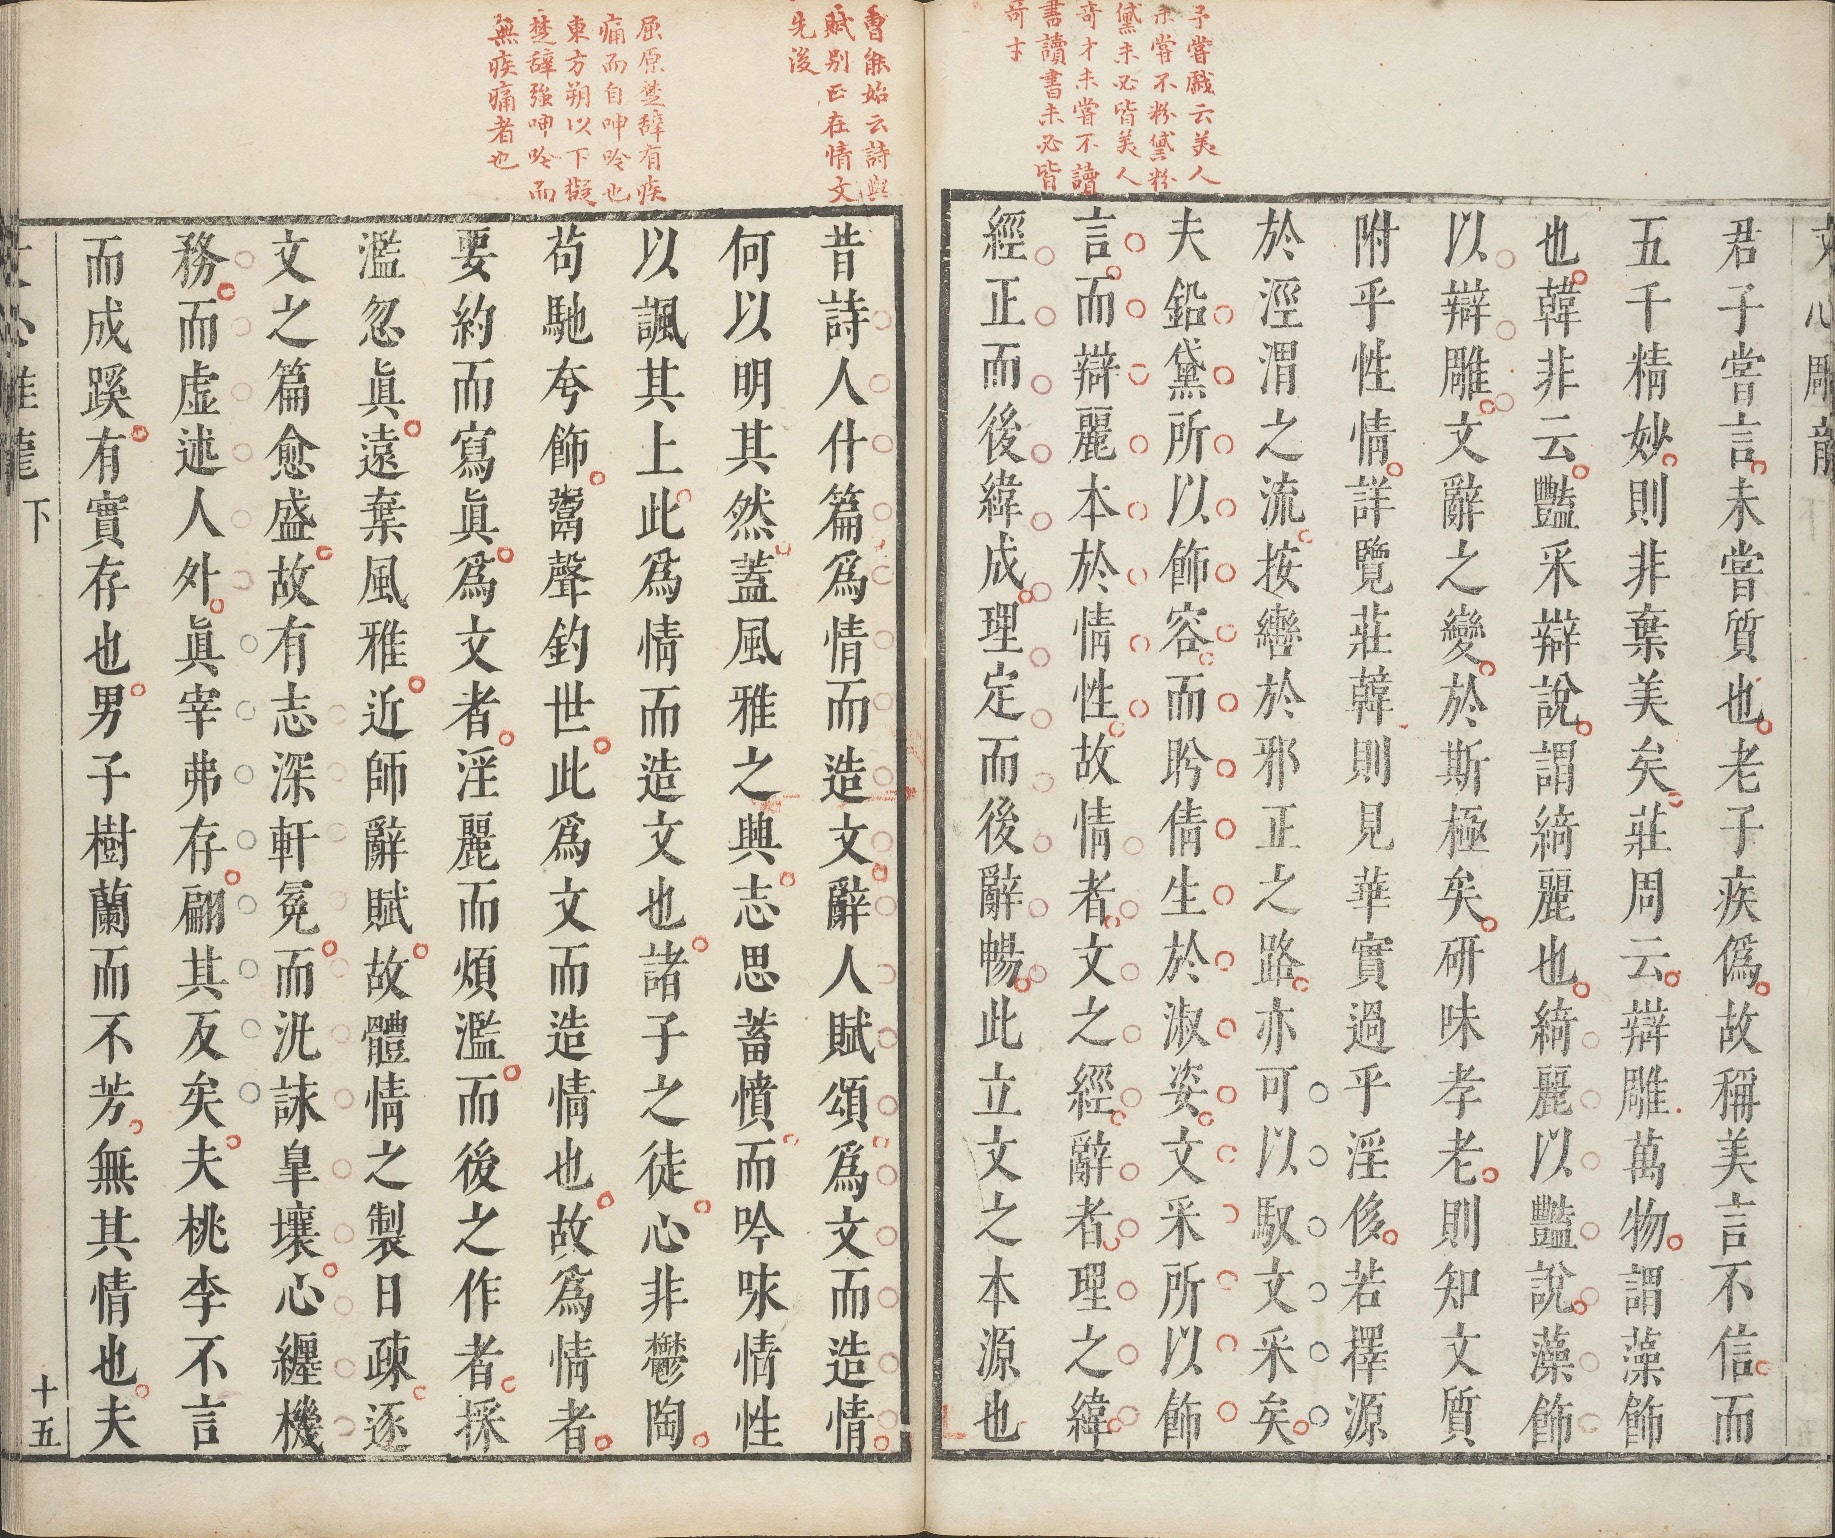 予嘗戲云美人
未嘗不粉黛粉
黛未必皆美人
奇才未嘗不讀
書讀書未必皆
奇才
文心雕龍
君子嘗言未嘗質也老子疾僞故稱美言不信而
五千精妙則非棄美矣莊周云辯雕萬物謂藻飾
也韓非云豔采辯說謂綺麗也綺麗以豔說藻飾
以辯雕文辭之變於斯極矣研味孝老則知文質
附乎性情詳覽莊韓則見華實過乎淫侈若擇源
於涇渭之流按轡於邪正之路亦可以馭文采矣
夫鉛黛所以飾容而盻倩生於淑姿文采所以飾
言而辯麗本於情性故情者文之經辭者理之緯
經正而後緯成理定而後辭暢此立文之本源也
曹能始云詩與
賦別正在情文
先後
屈原楚辭有疾
痛而自呻吟也
東方朔以下擬
楚辭強呻吟而
無疾痛者也
昔詩人什篇爲情而造文辭人賦頌爲文而造情
何以明其然蓋風雅之興志思蓄憤而吟咏情性
以諷其上此爲情而造文也諸子之徒心非鬱陶
苟馳夸飾鬻聲釣世此爲文而造情也故爲情者
要約而寫眞爲文者淫麗而煩濫而後之作者採
濫忽眞遠棄風雅近師辭賦故體情之製日疎逐
文之篇愈盛故有志深軒冕而汎詠皐壤心纏機
務而虛述人外眞宰弗存翩其反矣夫桃李不言
而成蹊有實存也男子樹蘭而不芳無其情也夫
文心雕龍 下
十五